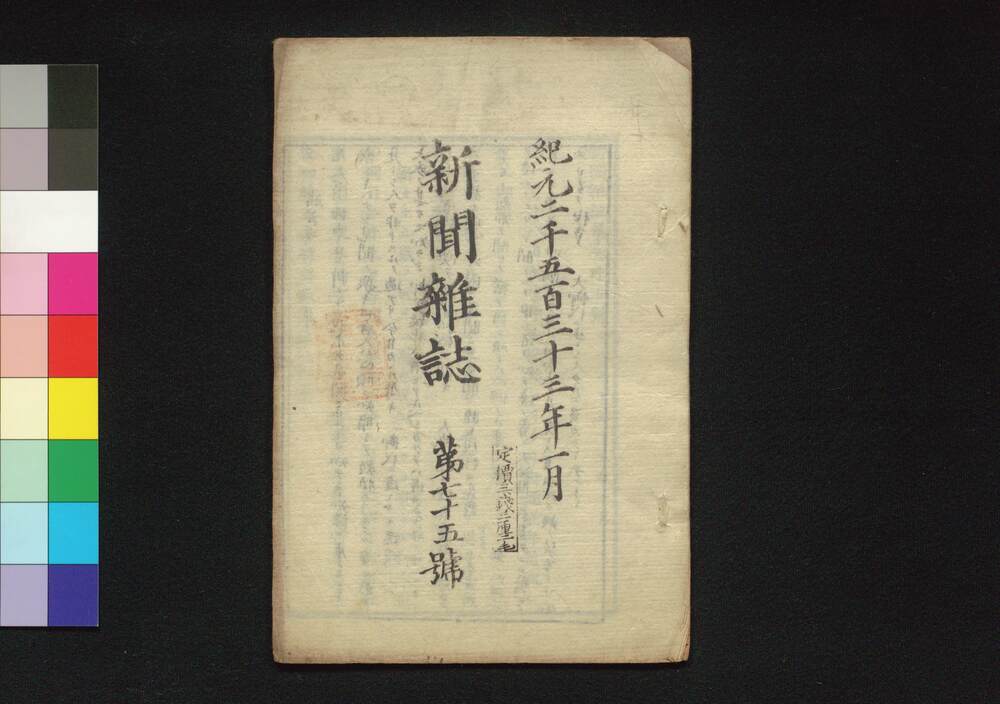 紀元二千五百三十三年一月
定價三錢二厘
新聞雜誌 第七十五號